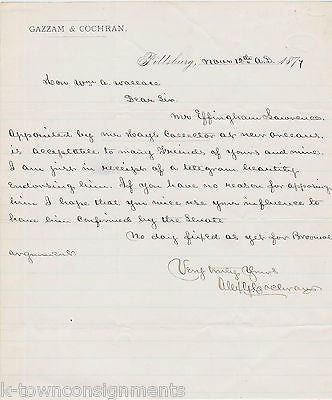 GAZZAM & COCHRAN,
Pittsburg, Nov 12th A.D. 1877
Hon Wm A. Wallace
Dear Sir.
Mr Effingham Lawrence
Appointed by Mr Hays Collector at New Orleans,
is acceptable to many Friends of yours and mine.
I am just in receipt of a telegram heartily
Endorsing him. If you have no reason for opposing
him I hope that you will use your influence to
have him confirmed by the Senate
No day fixed as yet for
argument.
Very truly Yours
k-townconsignments